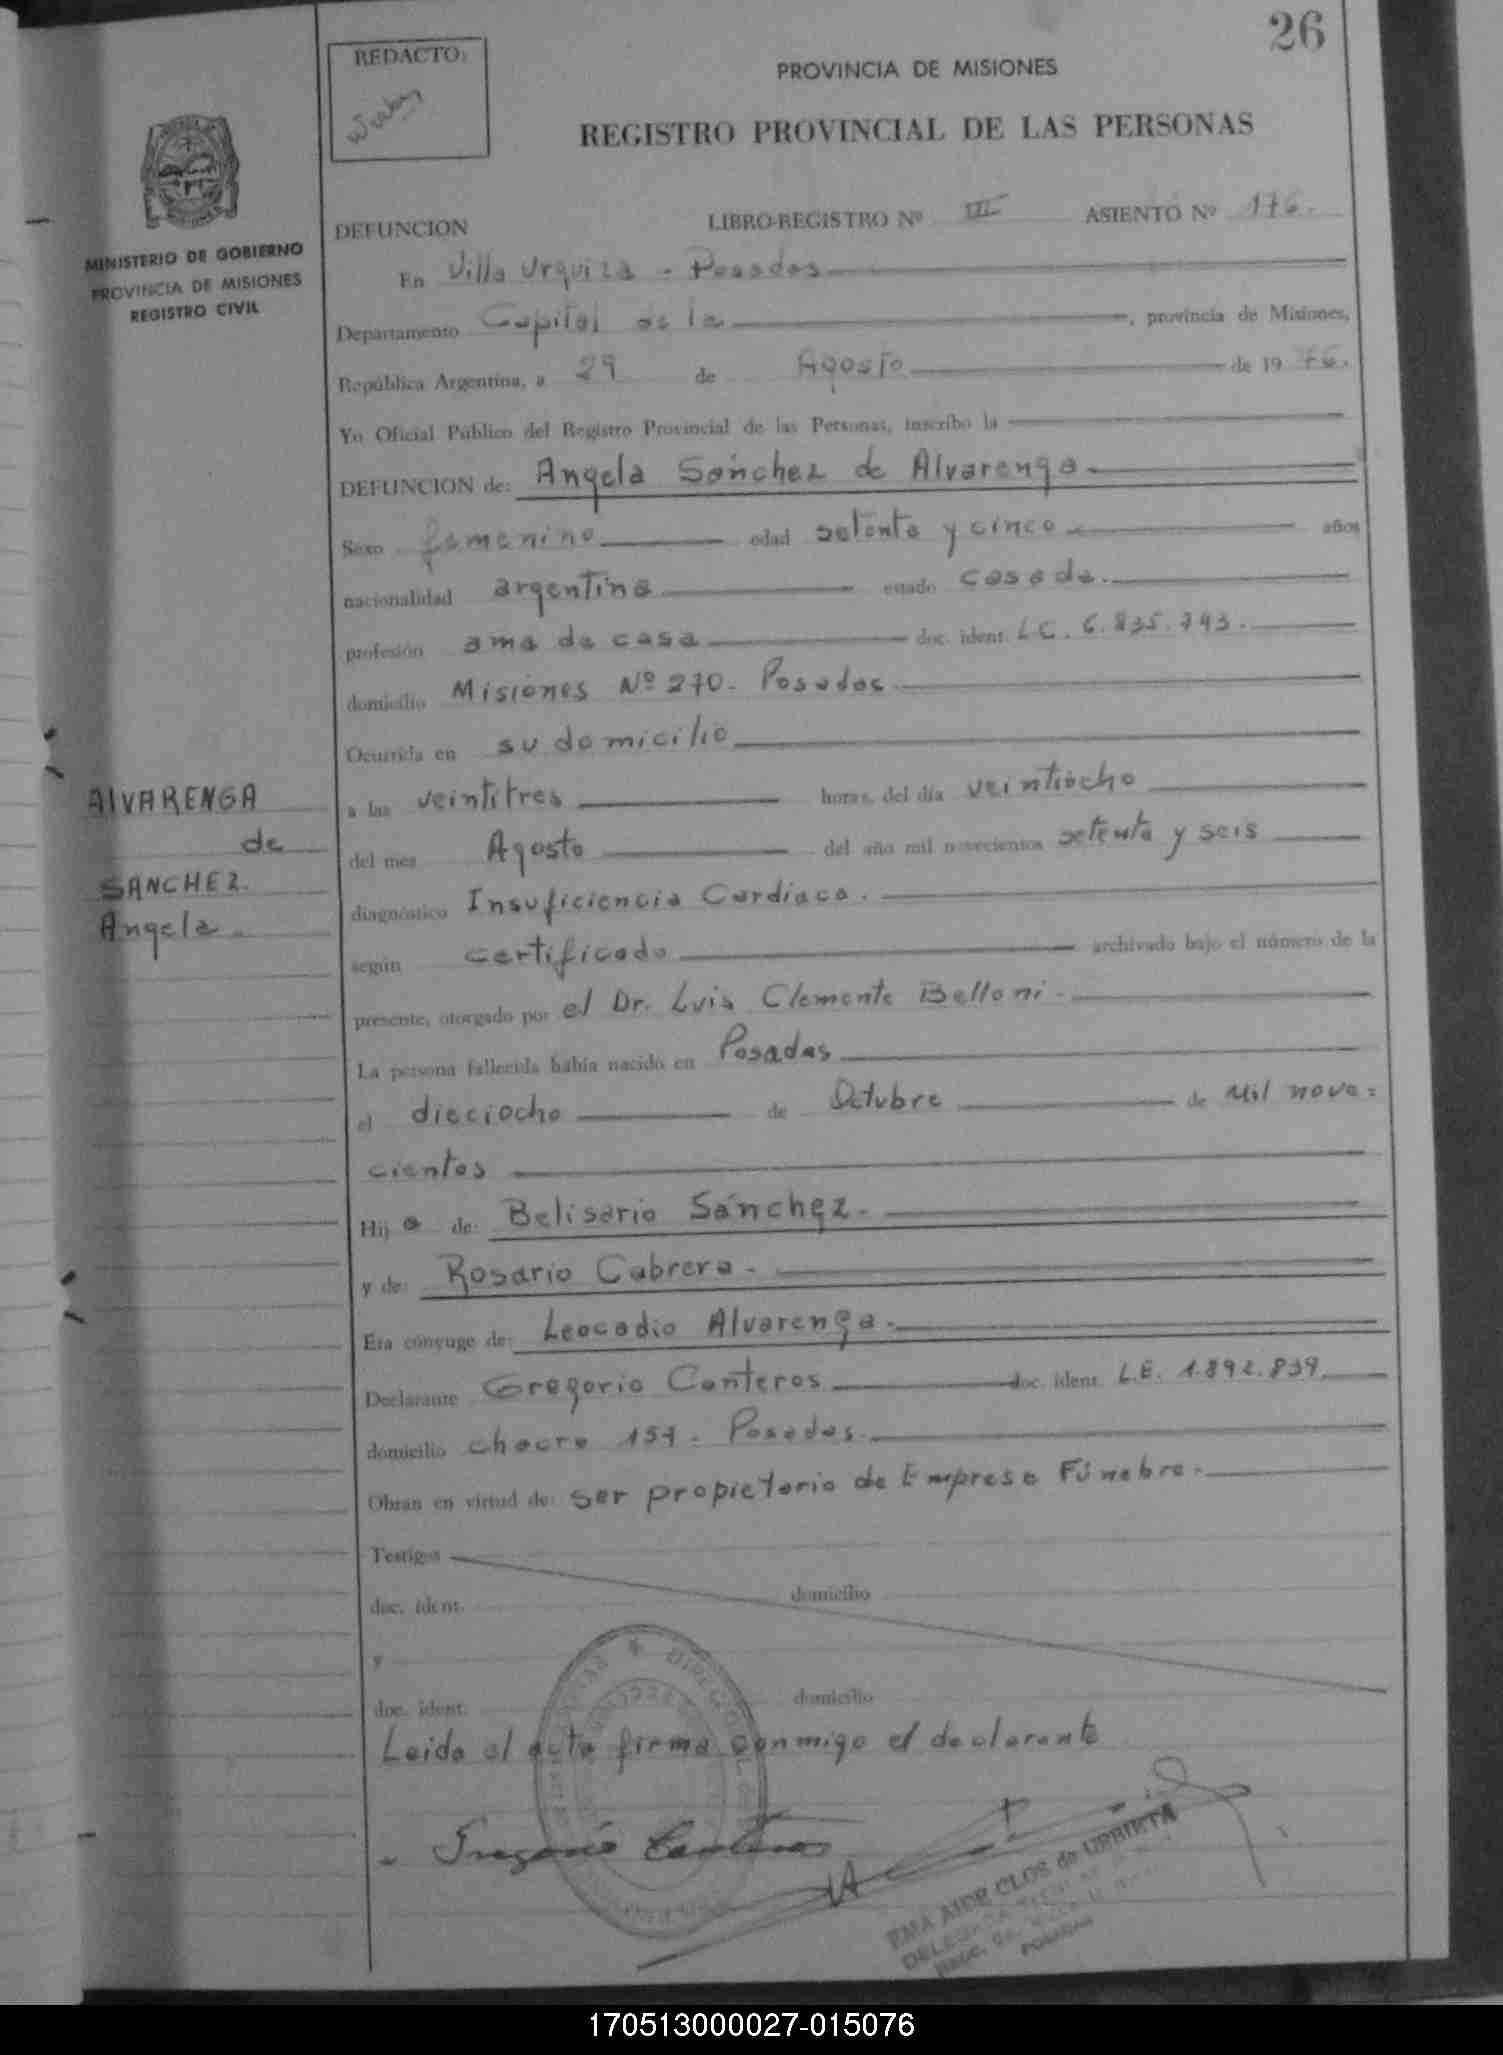 26
REDACTO:
PROVINCIA DE MISIONES
REGISTRO PROVINCIAL DE LAS PERSONAS
MINISTERIO DE GOBIERNO
PROVINCIA DE MISIONES
REGISTRO CIVIL
DEFUNCION LIBRO-REGISTRO Nº III ASIENTO Nº 176.
En Villa Urquiza - Posadas
Departamento Capital de la, provincia de Misiones,
República Argentina, a 29 de Agosto de 1976.
Yo Oficial Público del Registro Provincial de las Personas, inscribo la
DEFUNCION de: Angela Sánchez de Alvarenga
Sexo femenino edad setenta y cinco años
nacionalidad argentina estado casada.
profesión ama de casa doc. ident. LC. 6.835.793.
domicilio Misiones Nº 270. Posadas
Ocurrida en su domicilio
a las veintitres horas, del día veintiocho
del mes Agosto del año mil novecientos setenta y seis
diagnóstico Insuficiencia Cardiaca.
según certificado archivado bajo el número de la
presente, otorgado por el Dr. Luis Clemente Belloni.
La persona fallecida había nacido en Posadas
el dieciocho de Octubre de Mil nove=
cientos
Hija de: Belisario Sánchez.
y de: Rosario Cabrera.
Era cónyuge de: Leocadio Alvarenga.
Declarante Gregorio Canteros doc. ident. L.E. 1.892.839.
domicilio chacra 151. Posadas.
Obran en virtud de: ser propietario de Empresa Fúnebre.
Testigos
doc. ident. domicilio
y
doc. ident. domicilio
Leida el acta firma conmigo el declarante
Gregorio Canteros
EMA AIDE CLOS de URRUTIA
POSADAS
ALVARENGA
de
SANCHEZ.
Angela.
170513000027-015076